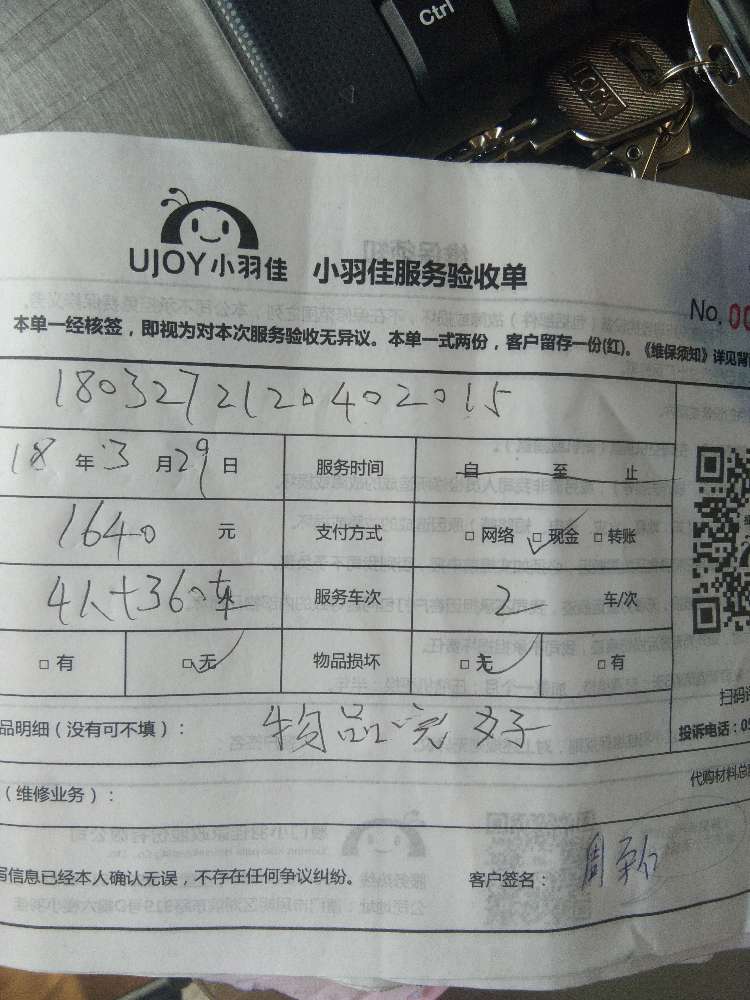 Ctrl
LOCK
UJOY小羽佳 小羽佳服务验收单
No. 00
本单一经核签，即视为对本次服务验收无异议。本单一式两份，客户留存一份(红)。《维保须知》详见背
1803272120402015
18年3月29日 服务时间 自 至 止
1640元 支付方式 □网络 □现金 □转账
4人+360车 服务车次 2 车/次
□有 □无 物品损坏 □无 □有
扫码
品明细（没有可不填）： 物品完好
投诉电话：05
代购材料总
（维修业务）：
写信息已经本人确认无误，不存在任何争议纠纷。 客户签名：周